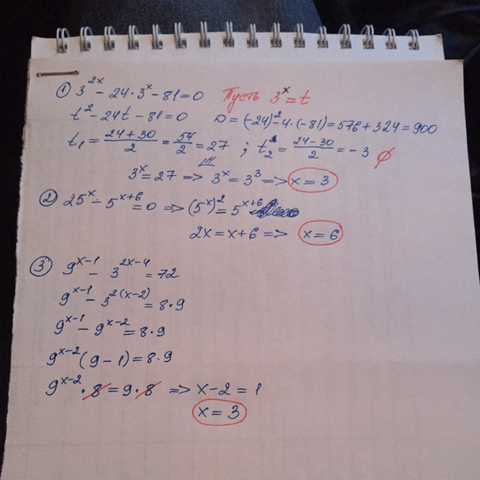 ① 3^{2x} - 24 · 3^x - 81 = 0 Пусть 3^x = t
t² - 24t - 81 = 0 D = (-24)² - 4 · (-81) = 576 + 324 = 900
t₁ = \frac{24+30}{2} = \frac{54}{2} = 27 ; t₂ = \frac{24-30}{2} = -3 ∅
3^x = 27 => 3^x = 3³ => x = 3
② 25^x - 5^{x+6} = 0 => (5^x)² = 5^{x+6}
2x = x + 6 => x = 6
③ 9^{x-1} - 3^{2x-4} = 72
9^{x-1} - 3^{2(x-2)} = 8 · 9
9^{x-1} - 9^{x-2} = 8 · 9
9^{x-2} (9 - 1) = 8 · 9
9^{x-2} · 8 = 9 · 8 => x - 2 = 1
x = 3